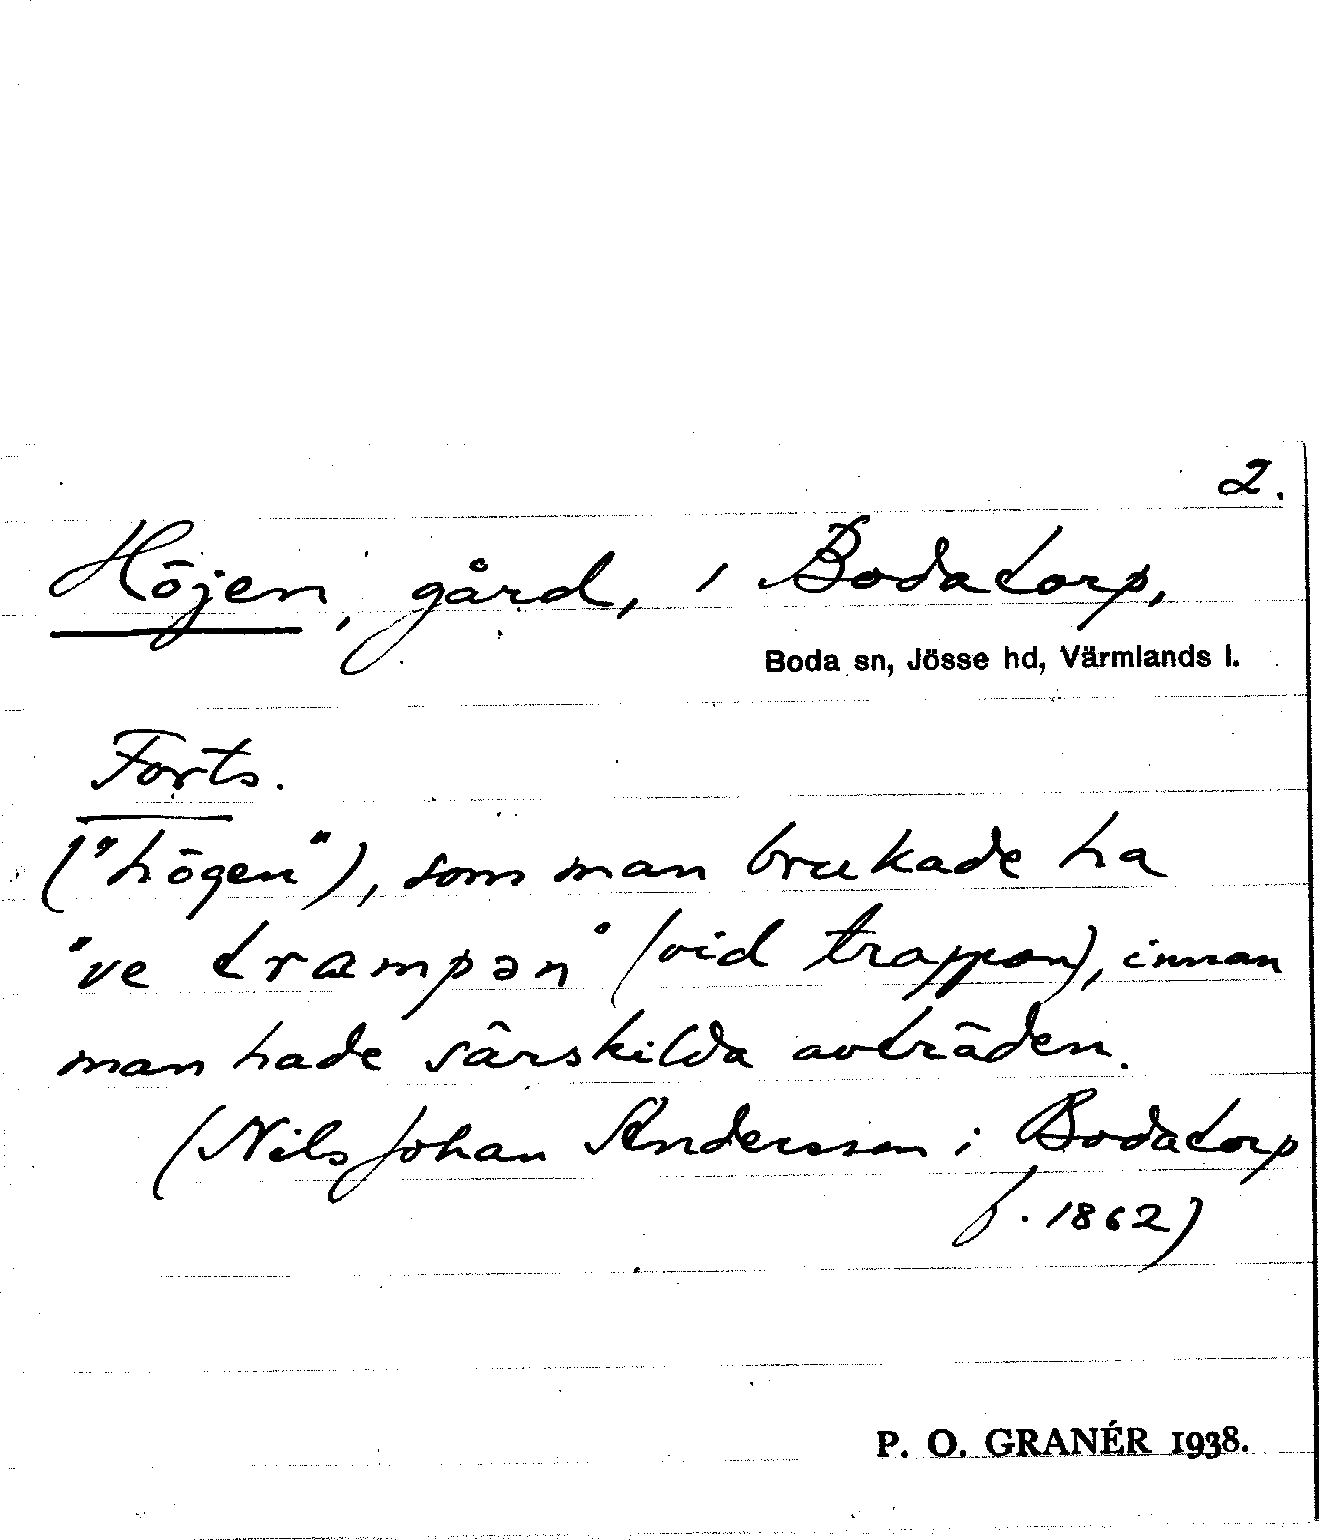 2.
Höjen, gård, i Bodatorp,
Boda sn, Jösse hd, Värmlands l.
Forts.
("högen"), som man brukade ha
"ve trampən" (vid trappan), innan
man hade särskilda avträden.
(Nils Johan Andersson i Bodatorp
f. 1862)
P. O. GRANÉR 1938.